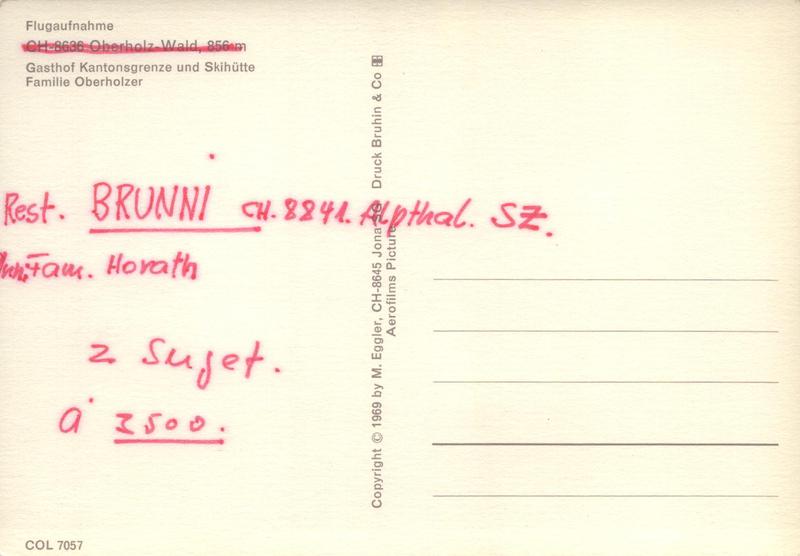 Flugaufnahme
CH-8636 Oberholz-Wald, 856 m
Gasthof Kantonsgrenze und Skihütte
Familie Oberholzer
Rest. BRUNNI CH. 8841. Alpthal. SZ.
Fam. Horath
2 Sujet.
à 2500.
Copyright © 1969 by M. Eggler, CH-8645 Jona SG Druck Bruhin & Co
Aerofilms Picture
COL 7057